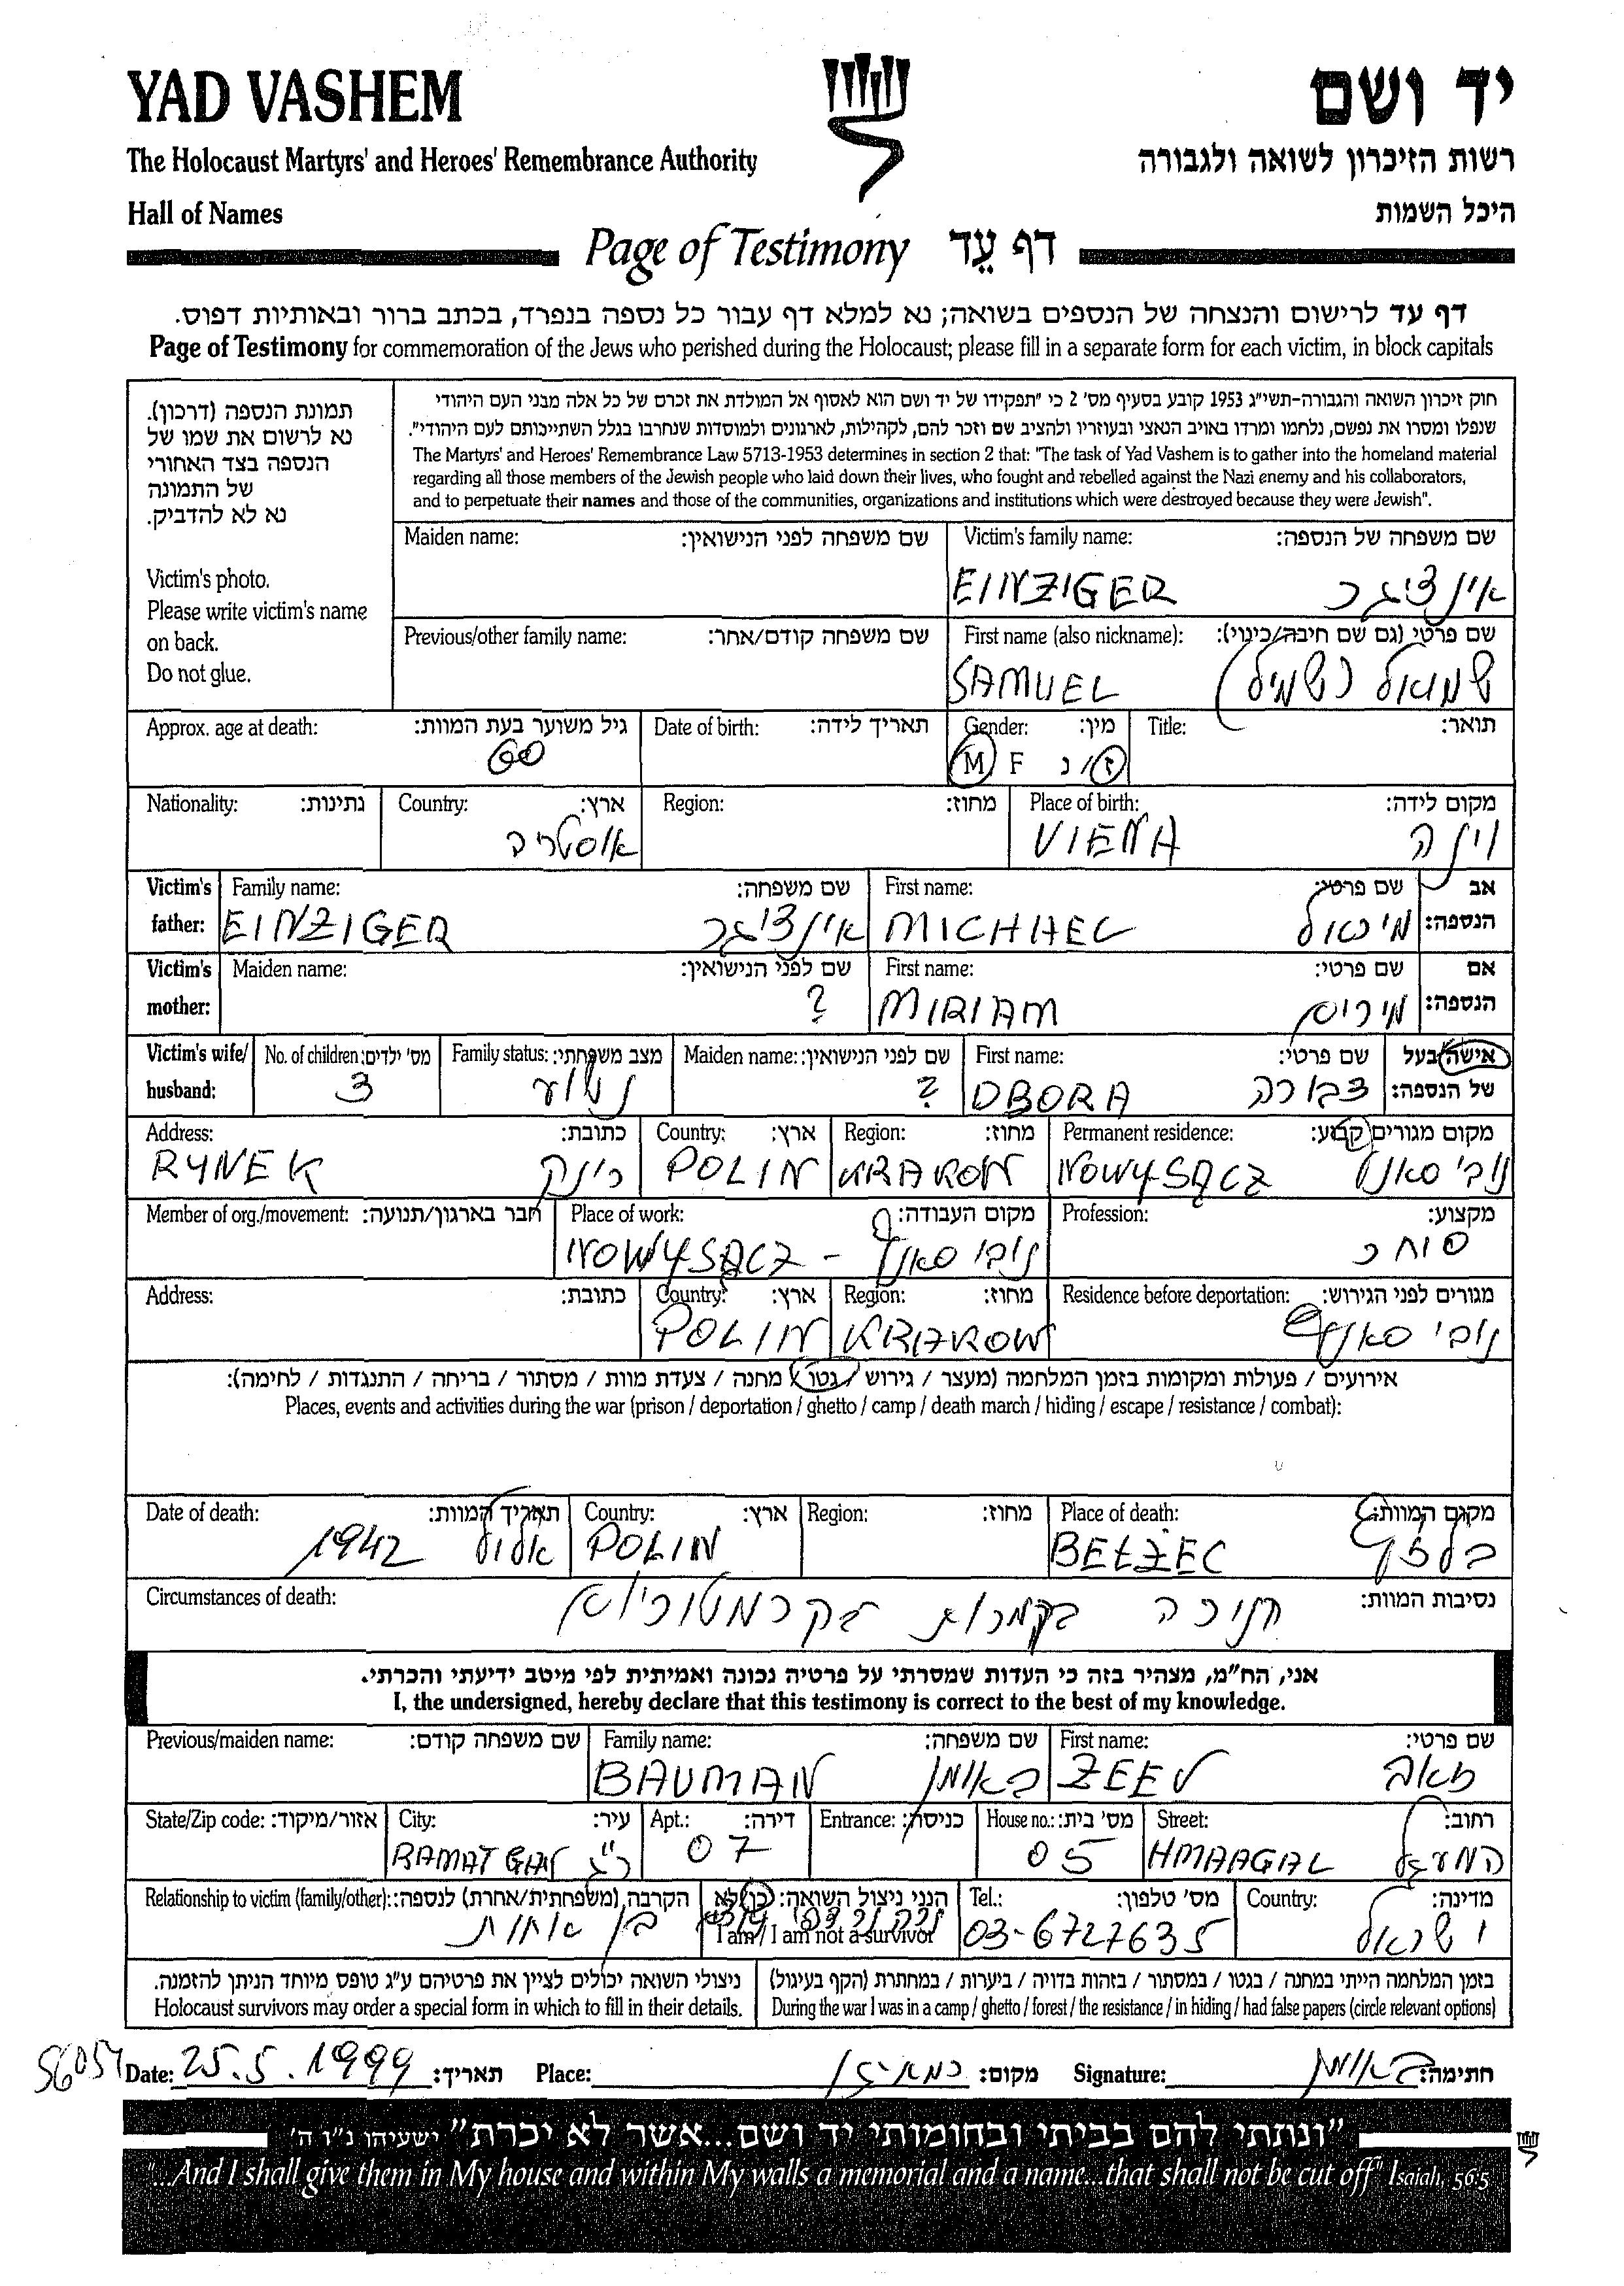 YAD VASHEM
יד ושם
The Holocaust Martyrs' and Heroes' Remembrance Authority
רשות הזיכרון לשואה ולגבורה
Hall of Names
היכל השמות
Page of Testimony דף עֵד
דף עד לרישום והנצחה של הנספים בשואה; נא למלא דף עבור כל נספה בנפרד, בכתב ברור ובאותיות דפוס.
Page of Testimony for commemoration of the Jews who perished during the Holocaust; please fill in a separate form for each victim, in block capitals
תמונת הנספה (דרכון).
נא לרשום את שמו של
הנספה בצד האחורי
של התמונה
נא לא להדביק.
Victim's photo.
Please write victim's name
on back.
Do not glue.
חוק זיכרון השואה והגבורה-תשי"ג 1953 קובע בסעיף מס' 2 כי "תפקידו של יד ושם הוא לאסוף אל המולדת את זכרם של כל אלה מבני העם היהודי
שנפלו ומסרו את נפשם, נלחמו ומרדו באויב הנאצי ובעוזריו ולהציב שם וזכר להם, לקהילות, לארגונים ולמוסדות שנחרבו בגלל השתייכותם לעם היהודי".
The Martyrs' and Heroes' Remembrance Law 5713-1953 determines in section 2 that: "The task of Yad Vashem is to gather into the homeland material
regarding all those members of the Jewish people who laid down their lives, who fought and rebelled against the Nazi enemy and his collaborators,
and to perpetuate their names and those of the communities, organizations and institutions which were destroyed because they were Jewish".
Maiden name: שם משפחה לפני הנישואין:
Victim's family name: שם משפחה של הנספה:
EINZIGER איינציגר
Previous/other family name: שם משפחה קודם/אחר:
First name (also nickname): שם פרטי (גם שם חיבה/כינוי):
SAMUEL שמואל (שמיל)
Approx. age at death: גיל משוער בעת המוות:
60
Date of birth: תאריך לידה:
Gender: מין:
M F ז/נ
Title: תואר:
Nationality: נתינות:
Country: ארץ:
אוסטריה
Region: מחוז:
Place of birth: מקום לידה:
VIENA וינה
Victim's father: אב הנספה:
Family name: שם משפחה:
EINZIGER איינציגר
First name: שם פרטי:
MICHAEL מיכאל
Victim's mother: אם הנספה:
Maiden name: שם לפני הנישואין:
?
First name: שם פרטי:
MIRIAM מירים
Victim's wife/ husband: אישה/בעל של הנספה:
No. of children: מס' ילדים:
3
Family status: מצב משפחתי:
נשוי
Maiden name: שם לפני הנישואין:
?
First name: שם פרטי:
DBORA דבורה
Address: כתובת:
RYNEK רינק
Country: ארץ:
POLIN
Region: מחוז:
KRAKOW
Permanent residence: מקום מגורים קבוע:
NOWY SĄCZ נובי סאנץ
Member of org./movement: חבר בארגון/תנועה:
Place of work: מקום העבודה:
NOWY SĄCZ - נובי סאנץ
Profession: מקצוע:
סוחר
Address: כתובת:
Country: ארץ:
POLIN
Region: מחוז:
KRAKOW
Residence before deportation: מגורים לפני הגירוש:
נובי סאנץ
אירועים / פעולות ומקומות בזמן המלחמה (מעצר / גירוש / גטו / מחנה / צעדת מוות / מסתור / בריחה / התנגדות / לחימה):
Places, events and activities during the war (prison / deportation / ghetto / camp / death march / hiding / escape / resistance / combat):
Date of death: תאריך המוות:
אלול 1942
Country: ארץ:
POLIN
Region: מחוז:
Place of death: מקום המוות:
BEŁŻEC בלזץ
Circumstances of death: נסיבות המוות:
בקרמטוריום
אני, הח"מ, מצהיר בזה כי העדות שמסרתי על פרטיה נכונה ואמיתית לפי מיטב ידיעתי והכרתי.
I, the undersigned, hereby declare that this testimony is correct to the best of my knowledge.
Previous/maiden name: שם משפחה קודם:
Family name: שם משפחה:
BAUMAN באומן
First name: שם פרטי:
ZEEV זאב
State/Zip code: אזור/מיקוד:
City: עיר:
RAMAT GAN ר"ג
Apt.: דירה:
07
Entrance: כניסה:
House no.: מס' בית:
05
Street: רחוב:
HMAAGAL המעגל
Relationship to victim (family/other): הקרבה (משפחתית/אחרת) לנספה:
בן אחות
הנני ניצול השואה: כן/לא
I am / I am not a survivor
Tel.: מס' טלפון:
03-6727635
Country: מדינה:
ישראל
ניצולי השואה יכולים לציין את פרטיהם ע"ג טופס מיוחד הניתן להזמנה.
Holocaust survivors may order a special form in which to fill in their details.
בזמן המלחמה הייתי במחנה / בגטו / במסתור / בזהות בדויה / ביערות / במחתרת (הקף בעיגול)
During the war I was in a camp / ghetto / forest / the resistance / in hiding / had false papers (circle relevant options)
Date: 25.5.1999 תאריך:
Place: רמת גן מקום:
Signature: באומן חתימה:
"ונתתי להם בביתי ובחומותי יד ושם...אשר לא יכרת" ישעיהו נ"ו ה'
"...And I shall give them in My house and within My walls a memorial and a name...that shall not be cut off" Isaiah, 56:5